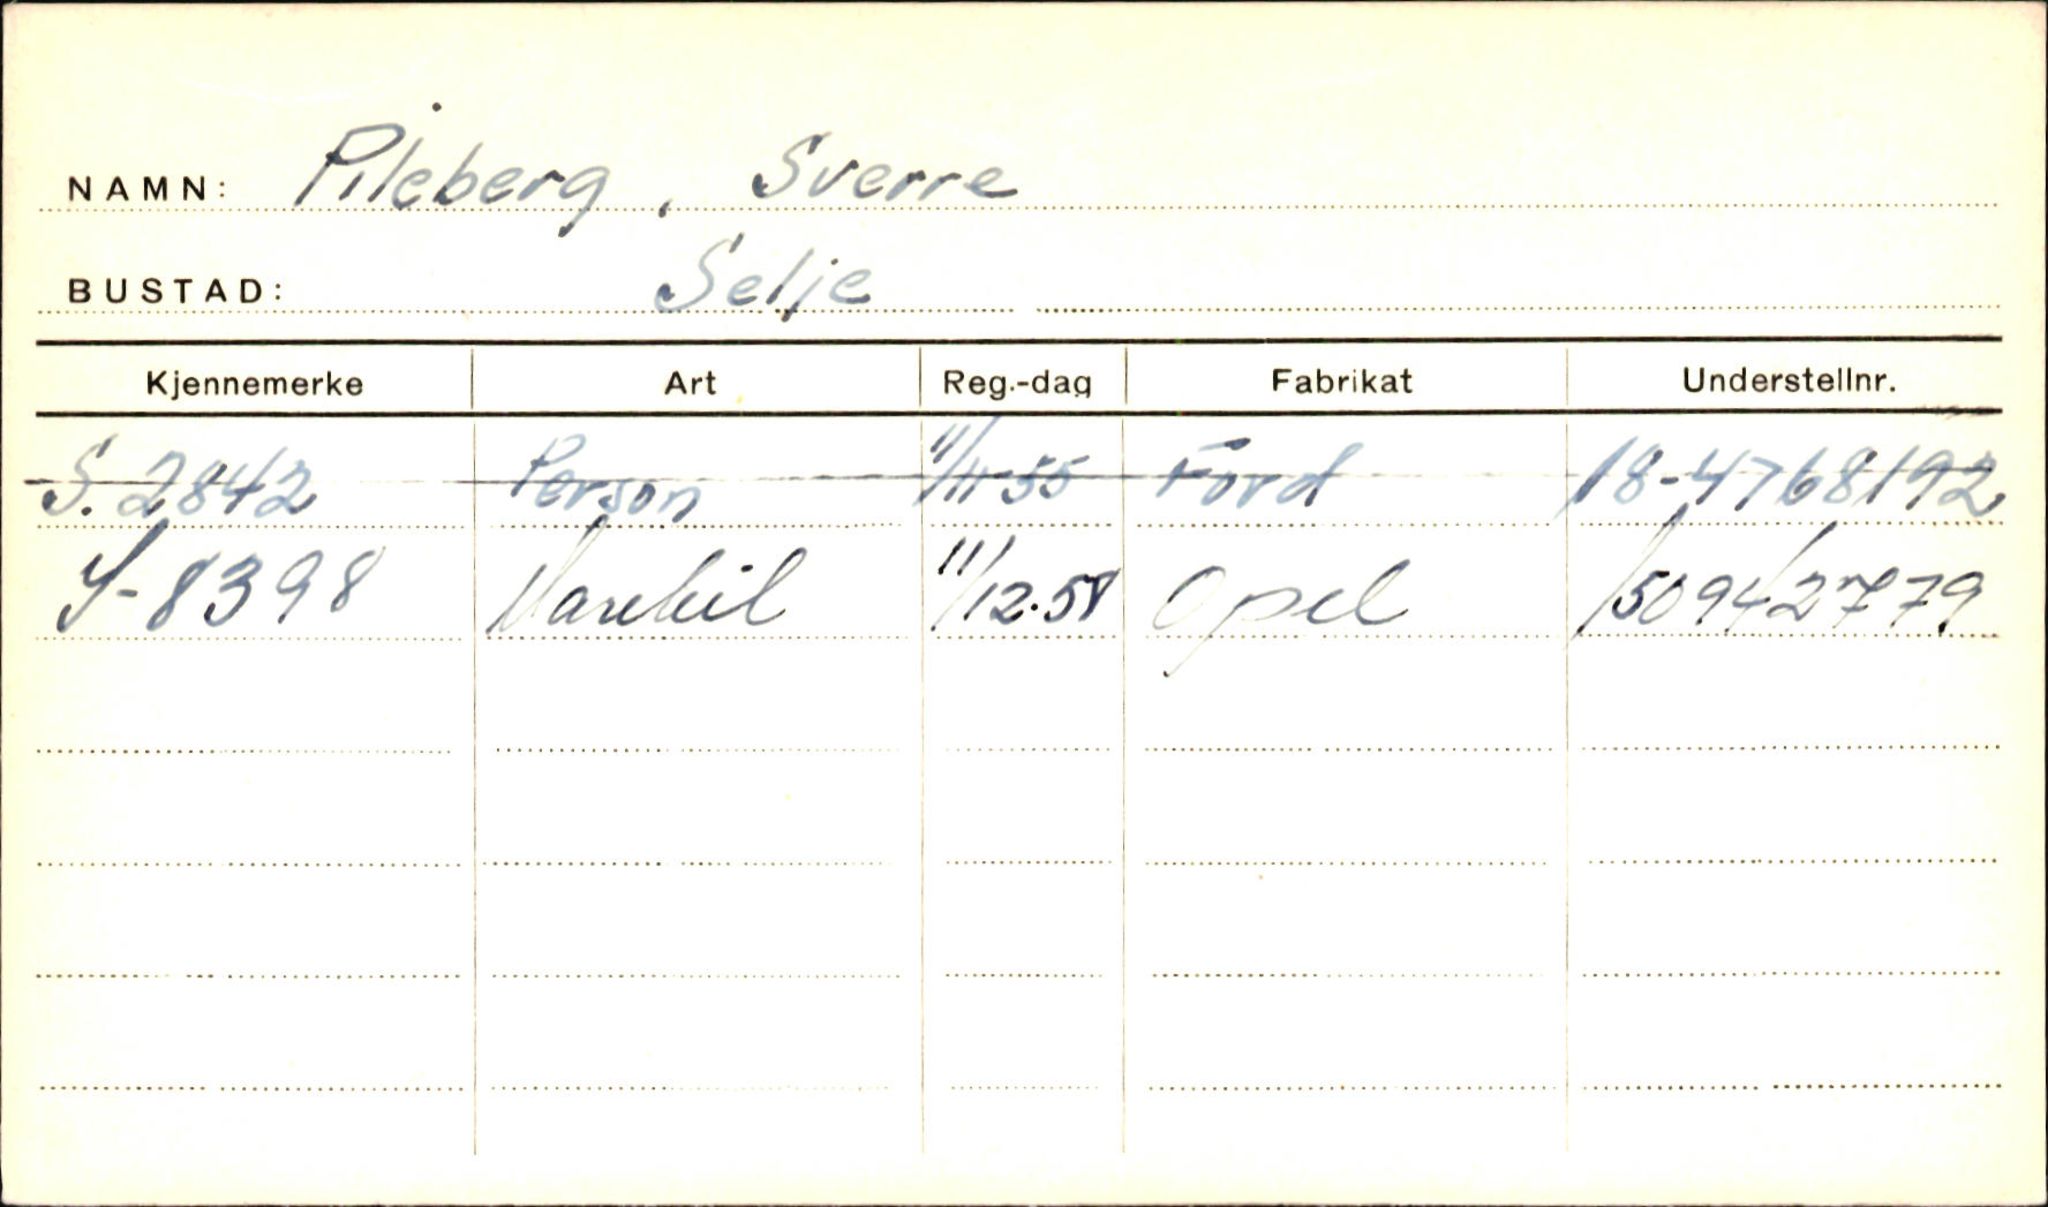 NAMN: Pileberg, Sverre
BUSTAD: Selje
Kjennemerke Art Reg.-dag Fabrikat Understellnr.
S. 2842 Person 11/11-55 Ford 18-4768192
S-8398 Varebil 11/12.58 Opel 150942779